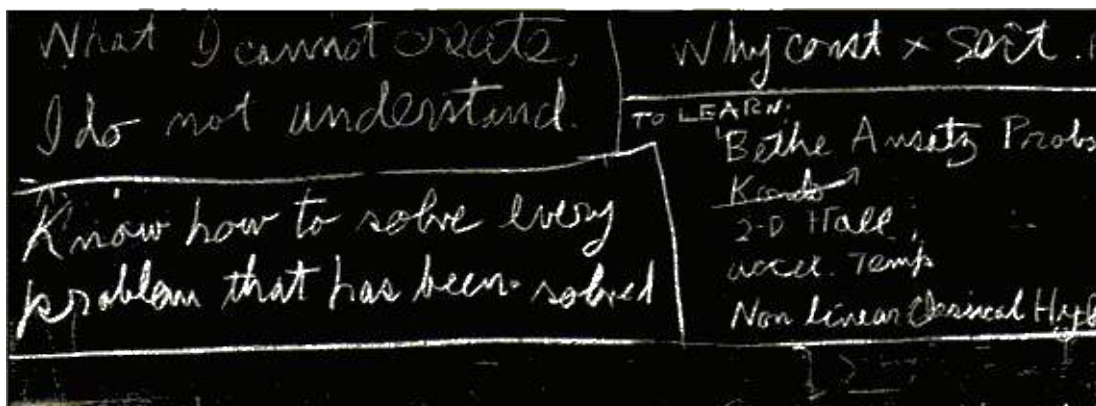 What I cannot create,
I do not understand.
Know how to solve every
problem that has been solved
Why const × sort .
TO LEARN:
Bethe Ansatz Probs
Kondo
2-D Hall
accel. Temp
Non linear Classical Hyd